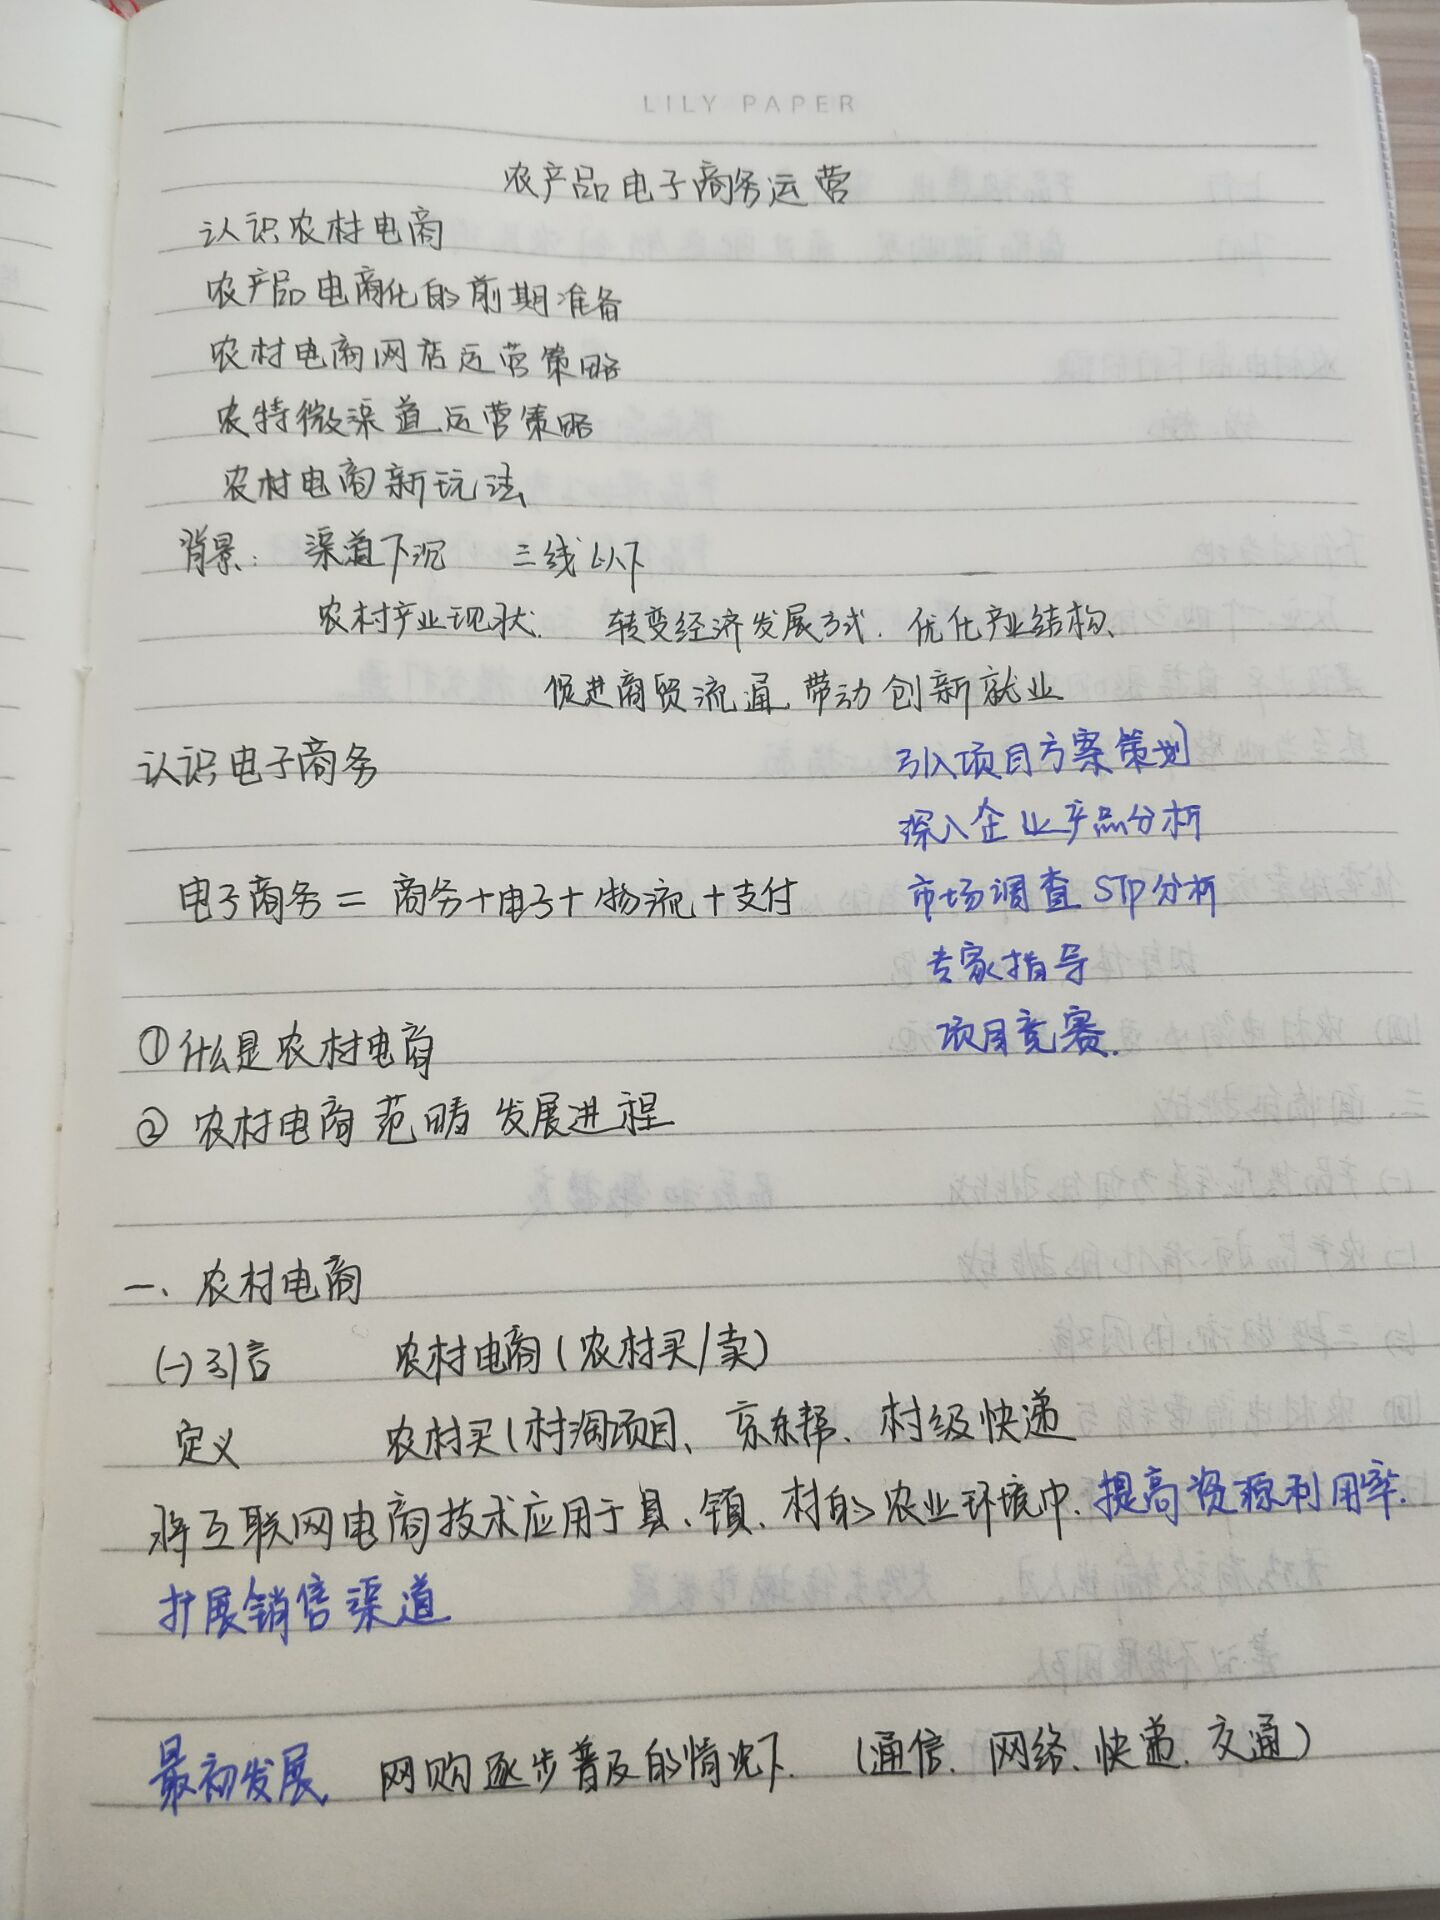 LILY PAPER
农产品电子商务运营
认识农村电商
农产品电商化的前期准备
农村电商网店运营策略
农特微渠道运营策略
农村电商新玩法
背景: 渠道下沉 三线以下
农村产业现状. 转变经济发展方式. 优化产业结构、
促进商贸流通 带动创新就业
认识电子商务 引入项目方案策划
深入企业产品分析
电子商务 = 商务+电子+物流+支付 市场调查 STP分析
专家指导
①什么是农村电商 项目竞赛.
② 农村电商 范畴 发展进程
一、农村电商
(一)引言 农村电商(农村买/卖)
定义 农村买(村淘项目、京东帮、村级快递
将互联网电商技术应用于县、镇、村的农业环境中. 提高资源利用率.
扩展销售渠道
最初发展, 网购逐步普及的情况下. (通信、网络、快递、交通)